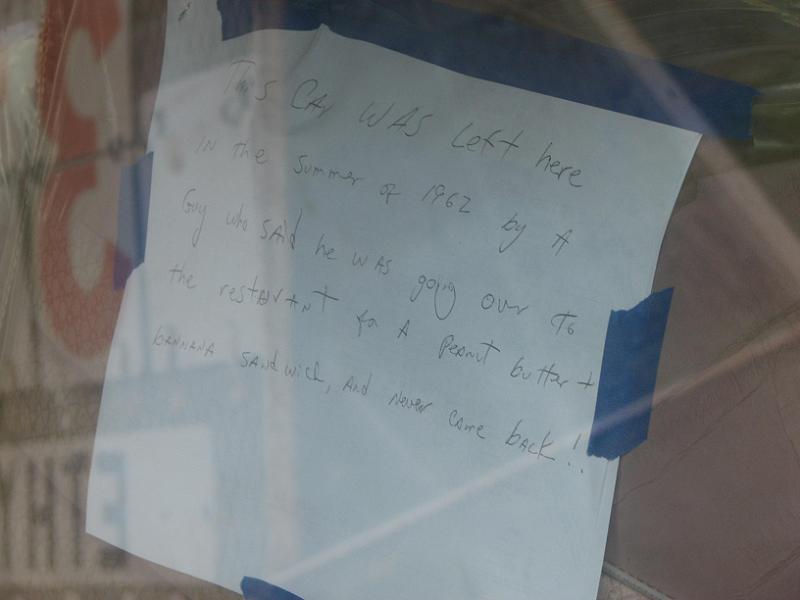 This CAr WAS Left here
IN the Summer of 1962 by A
Guy who SAid he WAS going over To
the restAurANT for A PeaNut butter +
bANNANA SANdwich, ANd Never CAme bACK!!